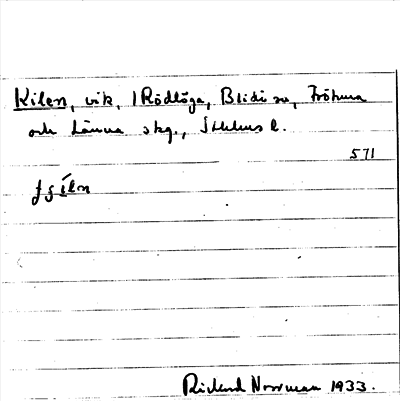 Kilen, vik, i Rödlöga, Blidö sn, Frötuna
och Länna skg., Sthlms l.
571
Rickard Norrman 1933.